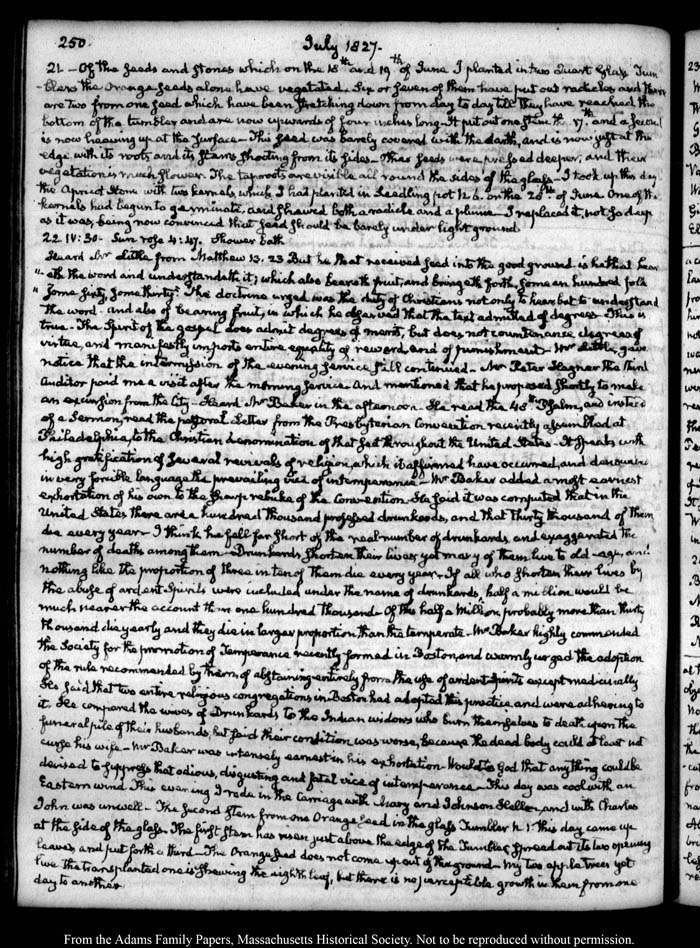 250.
July 1827.
21 — Of the seeds and stones which on the 18th and 19th of June I planted in two Quart Glass Tum
-blers the Orange seeds alone have vegetated. Six or seven of them have put out radicles and there
are two from one seed which have been stretching down from day to day till they have reached the
bottom of the tumbler and are now upwards of four inches long — It put out one stem the 17th, and a second
is now heaving up at the surface — This seed was barely covered with the earth, and is now just at the
edge with its roots and its stems shooting from its sides — Other seeds were pressed deeper, and their
vegetation is much slower. The tap roots are visible all round the sides of the glass — I took up this day
the Apricot Stone with two kernels, which I had planted in seedling pot N. 6. on the 28th of June. One of the
kernels had begun to germinate, and shewed both a radicle and a plume — I replaced it, not so deep
as it was, being now convinced that seed should be barely under light ground.
22. IV:30 — Sun rose 4:47. Shower bath
Heard Mr Little from Matthew 13. 23 But he that received seed into the good ground is he that hear
"eth the word and understandeth it; which also beareth fruit, and bringeth forth, some an hundred fold
"some sixty, some thirty." The doctrine urged was the duty of Christians not only to hear but to understand
the word — and also of bearing fruit, in which he observed that the text admitted of degrees. This is
true — The Spirit of the gospel does admit degrees of merit, but does not countenance degrees of
virtue, and manifestly imports entire equality of reward and of punishment — Mr Little gave
notice that the intermission of the evening service still continued — Mr Peter Hagner the third
Auditor paid me a visit after the morning service and mentioned that he proposed shortly to make
an excursion from the City — Heard Mr Baker in the afternoon — He read the 48th Psalm, and instead
of a Sermon, read the pastoral Letter from the Presbyterian Convention recently assembled at
Philadelphia, to the Christian denomination of that sect throughout the United States — It speaks with
high gratification of several revivals of religion, which it affirmed have occurred, and denounces
in very forcible language the prevailing vice of intemperance — Mr Baker added a most earnest
exhortation of his own to the sharp rebuke of the Convention. He said it was computed that in the
United States there are a hundred thousand professed drunkards, and that thirty thousand of them
die every year — I think he fell far short of the real number of drunkards, and exaggerated the
number of deaths among them — Drunkards shorten their lives, yet many of them live to old-age, and
nothing like the proportion of three in ten of them die every year. If all who shorten their lives by
the abuse of ardent Spirits were included under the name of drunkards, half a million would be
much nearer the account than one hundred thousand. Of this half a Million, probably more than thirty
thousand die yearly and they die in larger proportion than the temperate — Mr Baker highly commended
the Society for the promotion of Temperance recently formed in Boston, and warmly urged the adoption
of the rule recommended by them, of abstaining entirely from the use of ardent spirits except medicinally
He said that two entire religious congregations in Boston had adopted this practice and were adhering to
it. He compared the wives of Drunkards to the Indian widows who burn themselves to death upon the
funeral pile of their husbands, but said their condition was worse, because the dead body could at least not
curse his wife — Mr Baker was intensely earnest in his exhortation. Would to God that any thing could be
devised to suppress that odious, disgusting and fatal vice of intemperance — This day was cool with an
Eastern wind. This evening I rode in the Carriage with Mary and Johnson Hellen, and with Charles
John was unwell — The second stem from one Orange seed in the glass Tumbler N. 1. this day came up
at the side of the glass. The first stem has risen just above the edge of the Tumbler, spread out its two opening
leaves, and put forth a third — The Orange seed does not come up out of the ground — My two apple trees yet
live the transplanted one is shewing the eighth leaf, but there is no perceptible growth in them from one
day to another
From the Adams Family Papers, Massachusetts Historical Society. Not to be reproduced without permission.